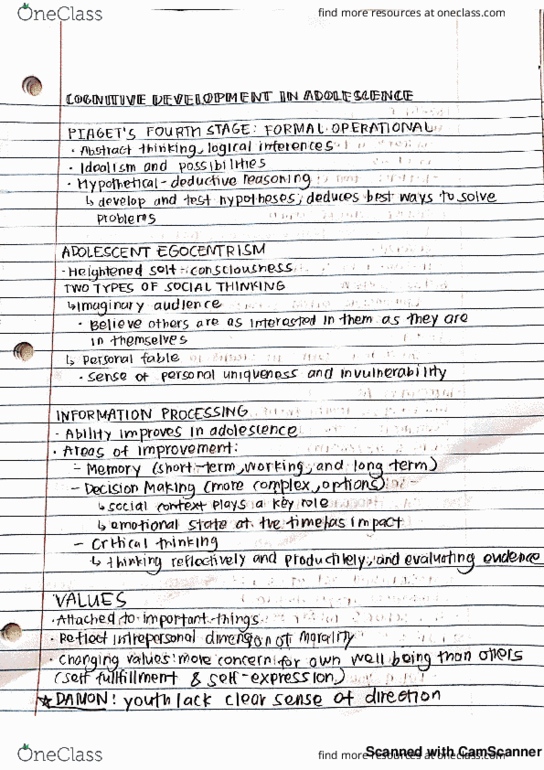 OneClass
find more resources at oneclass.com
COGNITIVE DEVELOPMENT IN ADOLESCENCE
PIAGET'S FOURTH STAGE: FORMAL OPERATIONAL
· Abstract thinking, logical inferences
· Idealism and possibilities
· Hypothetical-deductive reasoning
↳ develop and test hypotheses; deduces best ways to solve
problems
ADOLESCENT EGOCENTRISM
· Heightened self-consciousness
TWO TYPES OF SOCIAL THINKING
↳ Imaginary audience
· Believe others are as interested in them as they are
in themselves
↳ Personal fable
· Sense of personal uniqueness and invulnerability
INFORMATION PROCESSING
· Ability improves in adolescence
· Areas of improvement:
– Memory (short-term, working, and long term)
– Decision Making (more complex, options)
↳ social context plays a key role
↳ emotional state at the time has impact
– Critical thinking
↳ thinking reflectively and productively, and evaluating evidence
VALUES
· Attached to important things
· Reflect intrepersonal dimension of morality
· Changing values: more concern for own well being than others
(self fullfillment & self-expression)
★ DAMON: youth lack clear sense of direction
OneClass
find more resources at oneclass.com
Scanned with CamScanner